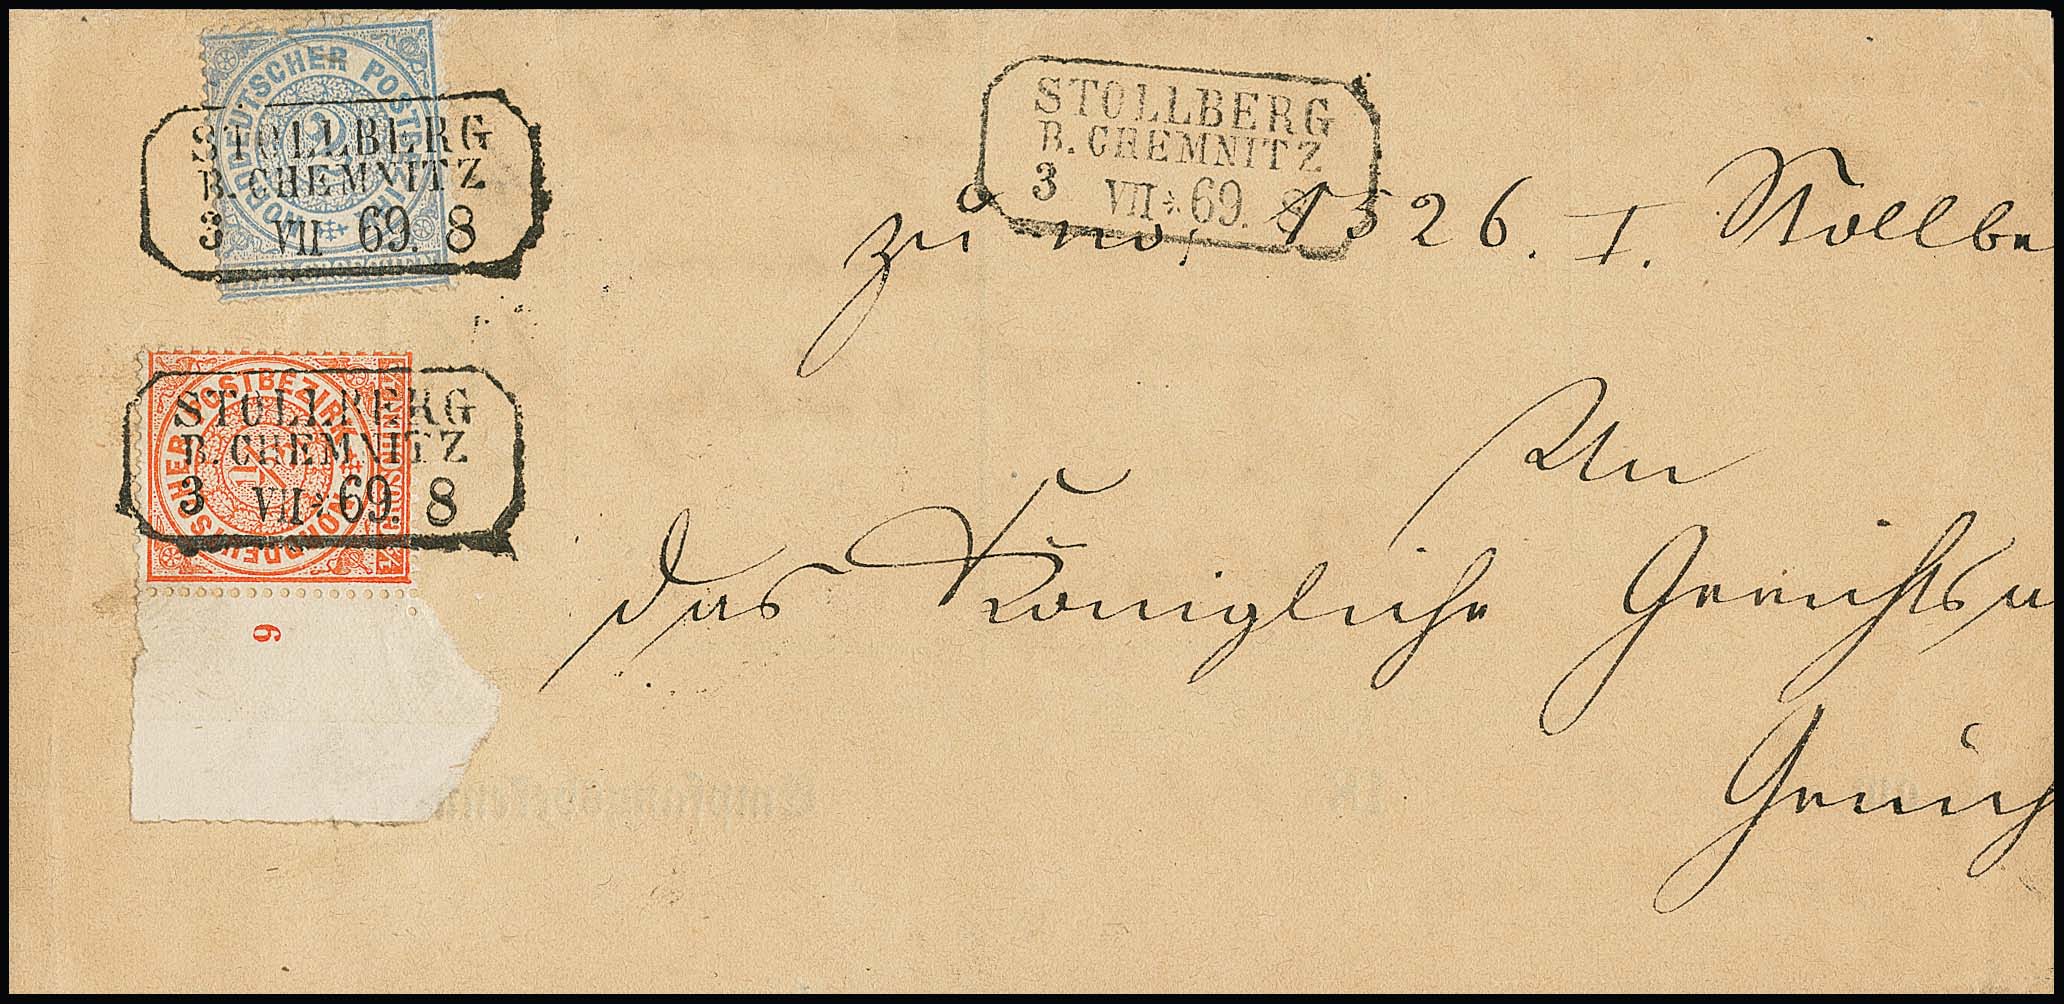 NORDDEUTSCHER POSTBEZIRK
2
STOLLBERG
B. CHEMNITZ
3 VII 69. 8
STOLLBERG
B. CHEMNITZ
3 VII * 69. 8
zu no. 1526. I. Stollbe
NORDDEUTSCHER POSTBEZIRK
1/2
STOLLBERG
B. CHEMNITZ
3 VII * 69. 8
9
An
das Königliche Gerichtsa